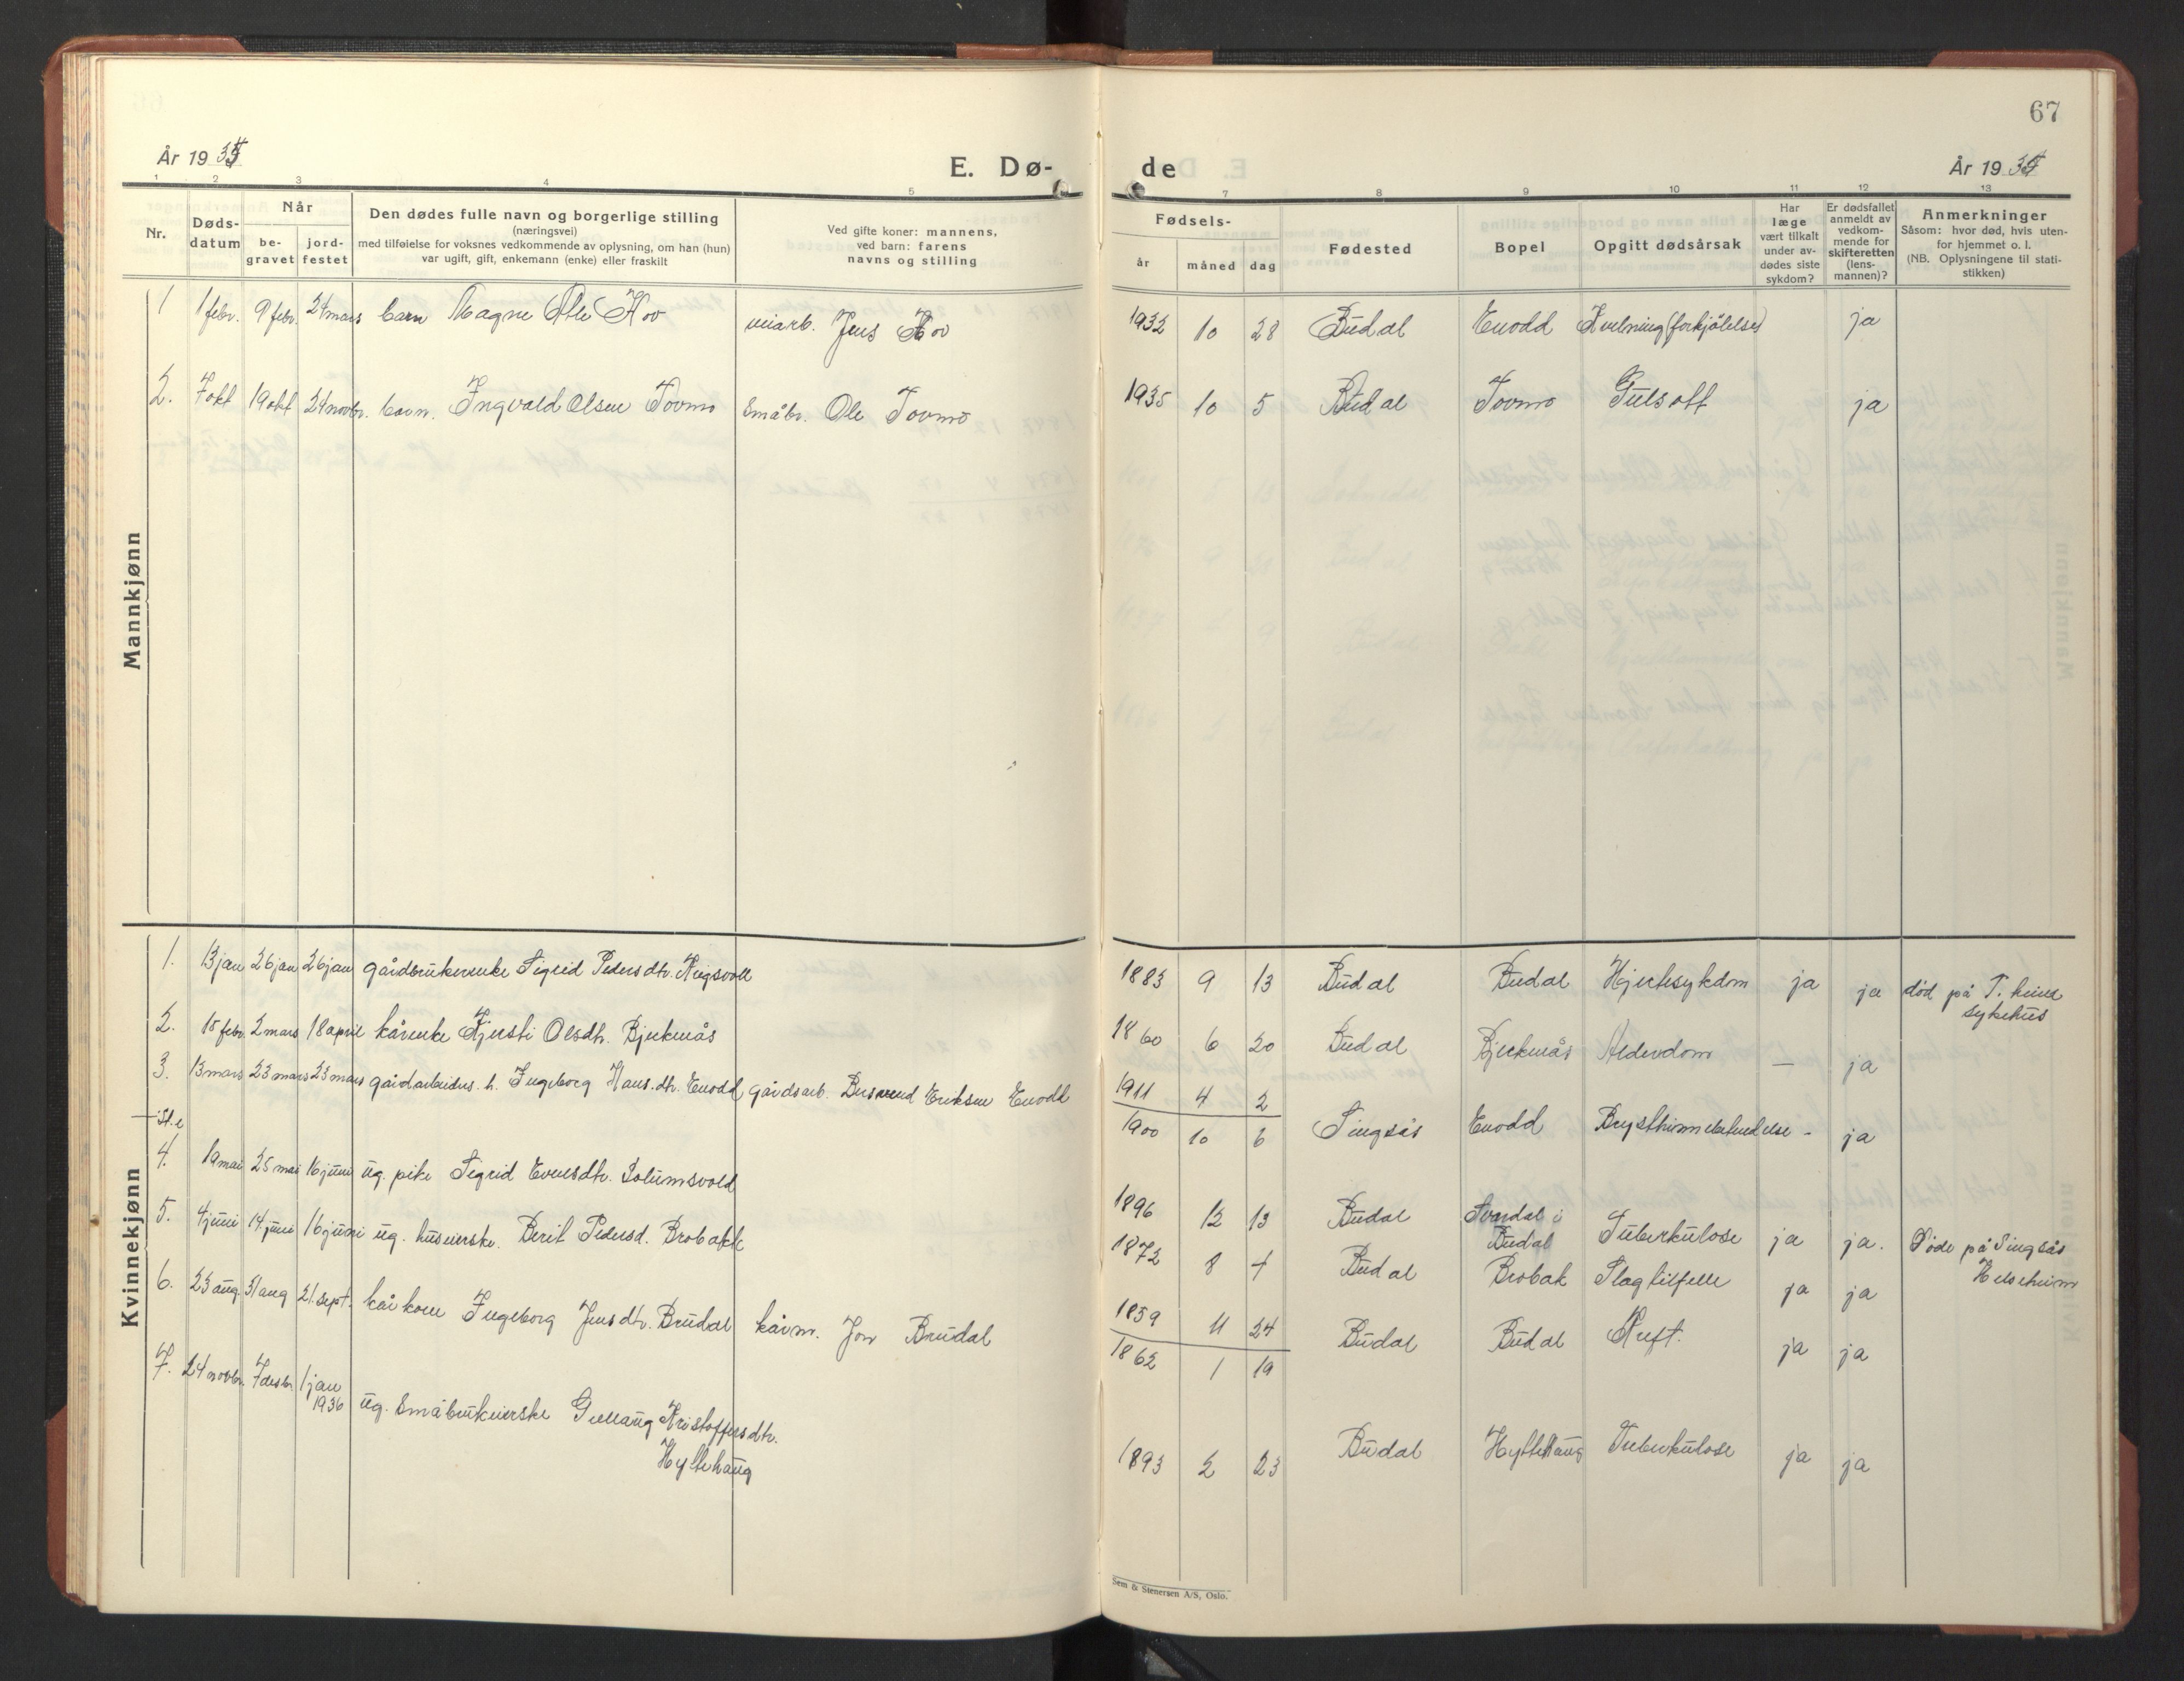 67
År 1935
E. Dø-
de
År 1935
1 2 3 4 5
7 8 9 10 11 12 13
Nr.
Døds-
datum
Når
be-
gravet
jord-
festet
Den dødes fulle navn og borgerlige stilling
(næringsvei)
med tilføielse for voksnes vedkommende av oplysning, om han (hun)
var ugift, gift, enkemann (enke) eller fraskilt
Ved gifte koner: mannens,
ved barn: farens
navns og stilling
Fødsels-
år måned dag
Fødested
Bopel
Opgitt dødsårsak
Har
læge
vært tilkalt
under av-
dødes siste
sykdom?
Er dødsfallet
anmeldt av
vedkom-
mende for
skifteretten
(lens-
mannen)?
Anmerkninger
Såsom: hvor død, hvis uten-
for hjemmet o. l.
(NB. Oplysningene til stati-
stikken)
Mannkjønn
1 1 febr. 9 febr. 24 mars barn Magne Ole Hov veiarb. Jens Hov 1932 10 28 Budal Enodd Kvelning (forkjölelse) ja
2. 7 okt 19 okt 24 novbr. barn. Ingvald Olsen Tovmo Småbr. Ole Tovmo 1935 10 5 Budal Tovmo Gulsott ja
Kvinnekjønn
1. 13 jan 26 jan 26 jan gårdbrukerenke Sigrid Pedersdtr. Rugsvoll 1883 9 13 Budal Budal Hjertesykdom ja ja död på T.heim
sykehus
2. 18 febr. 2 mars 18 april kårenke Kjersti Olsdtr. Bjerkenås 1860 6 20 Budal Bjerkenås Alderdom — ja
3. 13 mars 23 mars 23 mars gårdarbeiders. h. Ingeborg Hans.dtr. Enodd gårdsarb. Bersvend Eriksen Enodd 1911 4 2
1900 10 6 Singsås Enodd Brysthinnebetendelse - ja
4. 19 mai 25 mai 16 juni ug. pike Sigrid Evensdtr. Solumsvold 1896 12 13 Budal Svardal i
Budal Tuberkulose ja ja. Döde på Singsås
Helseheim
5. 4 juni 14 juni 16 juni ug. huseierske. Berit Pedersd. Brobakk 1872 8 4 Budal Brobak Slagtilfelle ja ja
6. 23 aug. 31 aug 21. sept. kårkone Ingeborg Jensdtr. Brudal kårm. Jon Brudal 1859 11 24
1862 1 19 Budal Budal Kreft. ja ja
7. 24 novbr. 7 desbr. 1 jan
1936 ug. Småbrukerske Gullaug Kristoffersdtr.
Hyttehaug 1893 2 23 Budal Hyttehaug Tuberkulose ja ja
Sem & Stenersen A/S, Oslo.